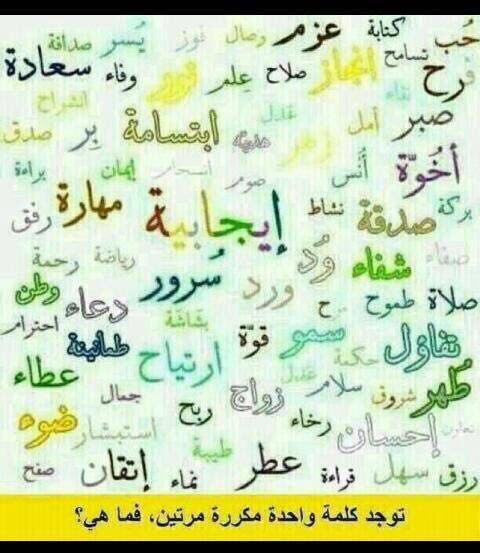 حُب كتابة عزم وصال فوز يُسر صدافة
فرح تسامح انجاز صلاح عِلم نور وفاء سعادة
نقاء انشراح
صبر أمل عدل هدية ابتسامة بِر صدق
زهر
أُخُوّة أُنْس صوم إيمان براءة
بركة صدقة نشاط إيجابية مهارة رفق
صفاء شفاء وُد سُرور رياضة رحمة
صلاة طموح مرح ورد دعاء وطن
بشَاشة احترام
تفاؤل حكمة سمو قوّة ارتياح طمأنينة
عدل عطاء
طُهر شروق سلام زواج جمال
ربح ضوء
تعاون إحسان رخاء طيبة استبشار
رزق سهل قراءة عطر نماء إتقان صفح
توجد كلمة واحدة مكررة مرتين، فما هي؟